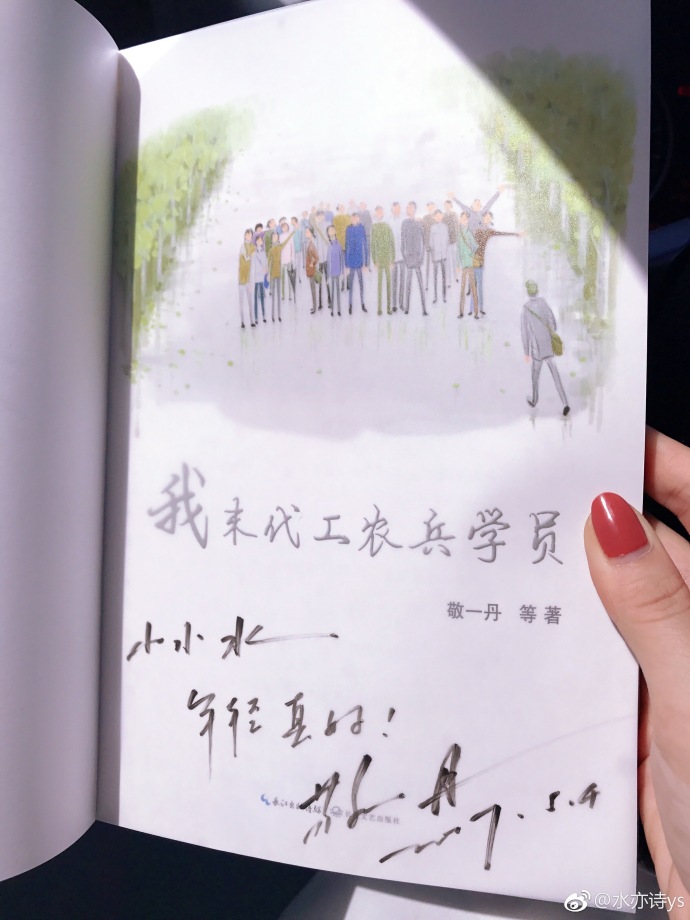 我末代工农兵学员
敬一丹 等著
小小水
年轻真好!
敬一丹
7.5.4
长江文艺出版社
@水亦诗ys